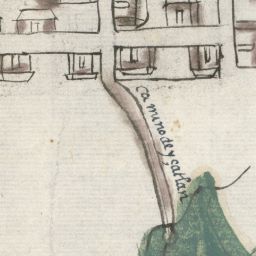 camino de yçatlan